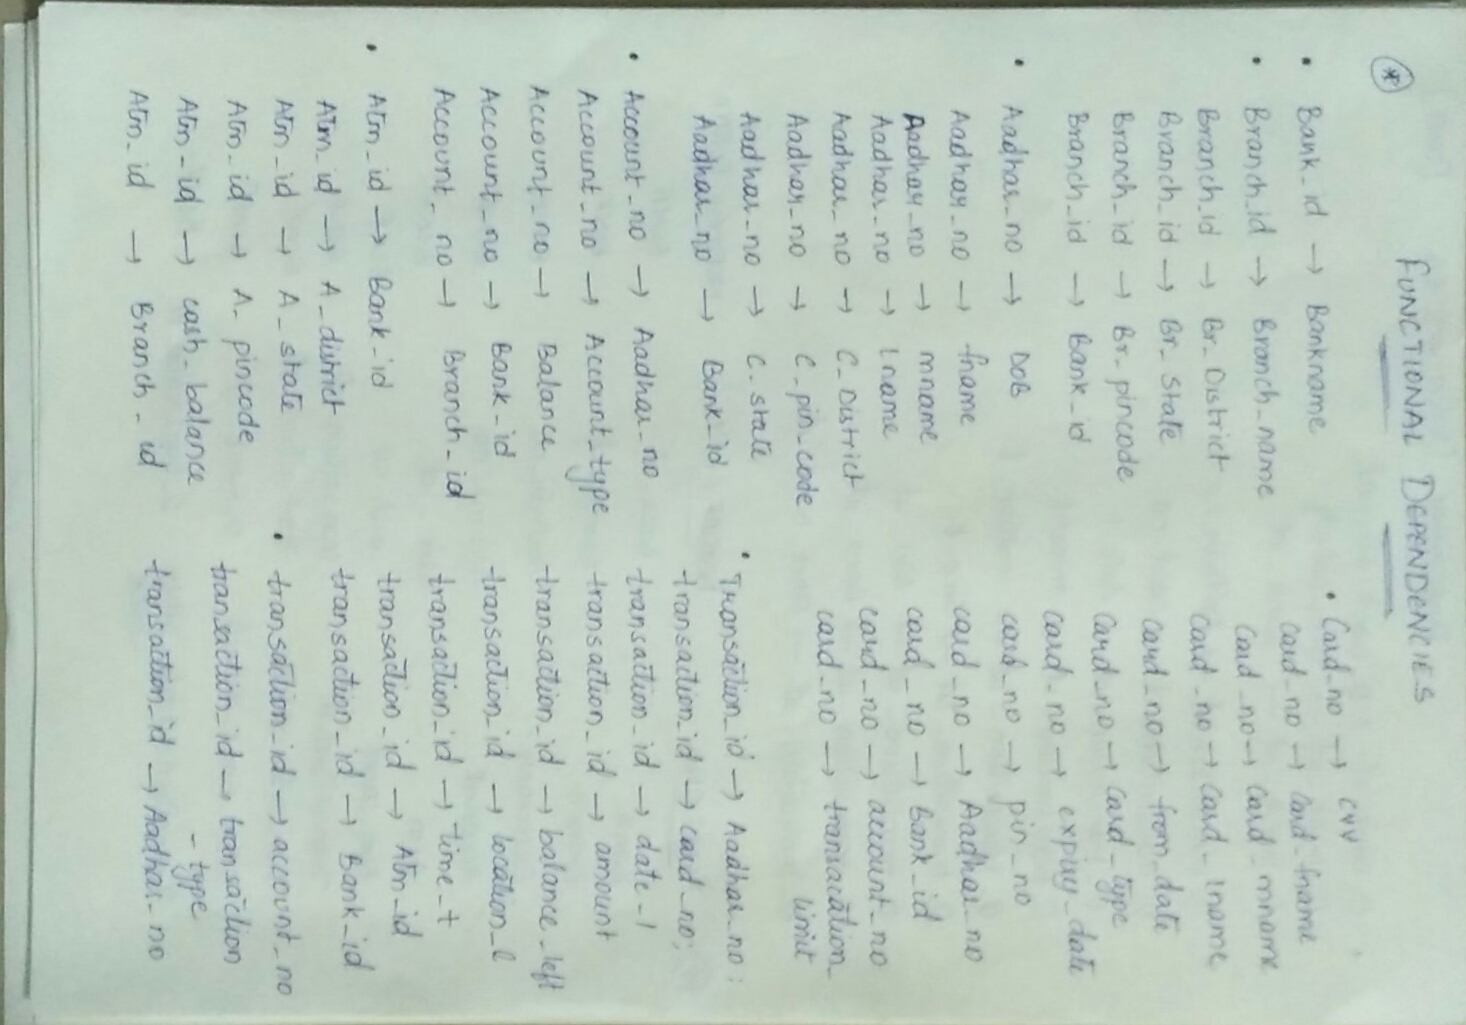 FUNCTIONAL DEPENDENCIES
*
• Bank_id → Bankname
• Branch_id → Branch_name
Branch_id → Br_District
Branch_id → Br_State
Branch_id → Br_pincode
Branch_id → Bank_id
• Aadhar_no → DOB
Aadhar_no → fname
Aadhar_no → mname
Aadhar_no → lname
Aadhar_no → C_District
Aadhar_no → C_pin_code
Aadhar_no → C_state
Aadhar_no → Bank_id
• Account_no → Aadhar_no
Account_no → Account_type
Account_no → Balance
Account_no → Bank_id
Account_no → Branch_id
• Atm_id → Bank_id
Atm_id → A_district
Atm_id → A_state
Atm_id → A_pincode
Atm_id → cash_balance
Atm_id → Branch_id
• Card_no → CVV
card_no → Card_fname
Card_no → Card_mname
Card_no → Card_lname
card_no → from_date
Card_no → Card_type
card_no → expiry_date
card_no → pin_no
card_no → Aadhar_no
card_no → Bank_id
card_no → account_no
card_no → transacation_
limit
• Transaction_id → Aadhar_no;
transaction_id → card_no;
transaction_id → date_1
transaction_id → amount
transaction_id → balance_left
transaction_id → location_l
transaction_id → time_t
transaction_id → Atm_id
transaction_id → Bank_id
• transaction_id → account_no
transaction_id → transaction
_type
transaction_id → Aadhar_no